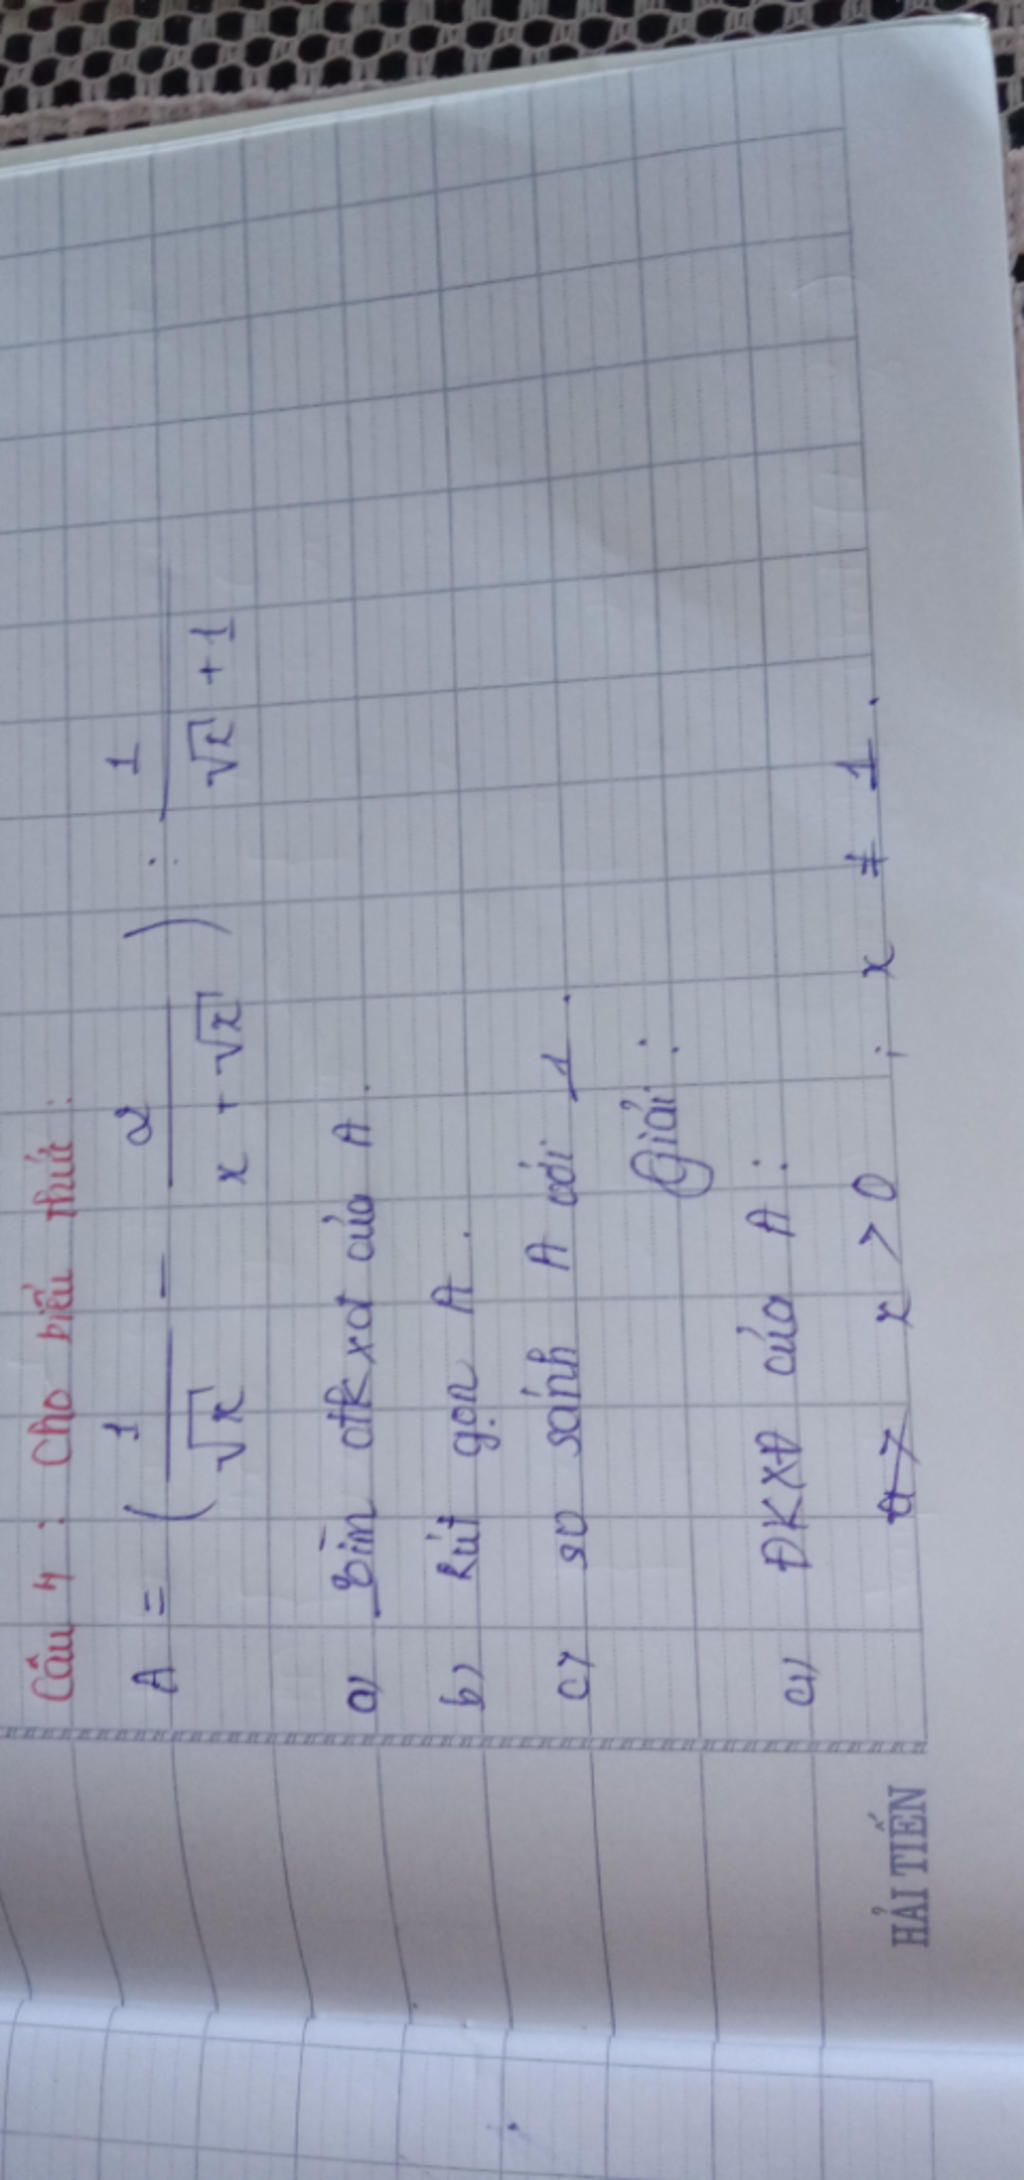 Câu 4 : Cho biểu thức :
A = ( 1/√x − 2/(x + √x) ) : 1/(√x + 1)
a) Tìm đkxđ của A.
b) Rút gọn A.
c) so sánh A với 1.
Giải :
a) ĐKXĐ của A :
x > 0 ; x ≠ 1.
HẢI TIẾN